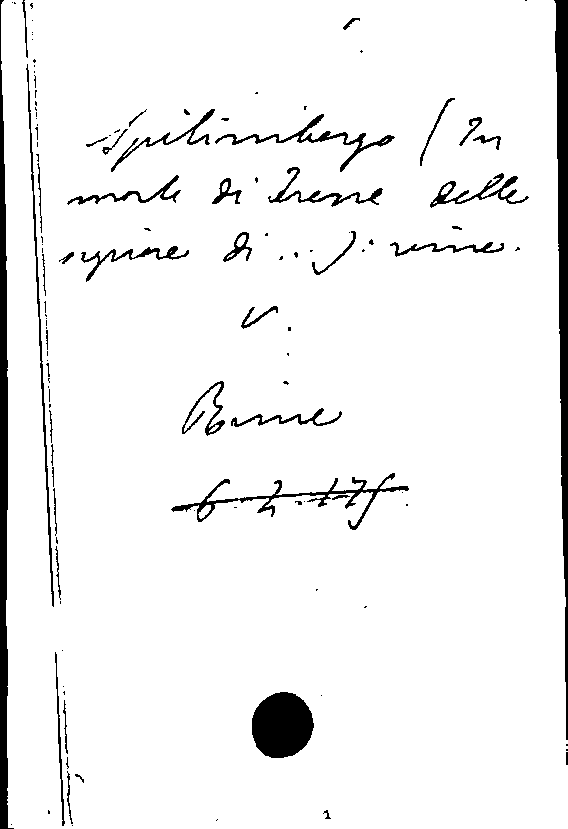 Spilimbergo (In
morte di Irene delle
signore di ...): rime.
v.
Rime
6. 2. 175
1